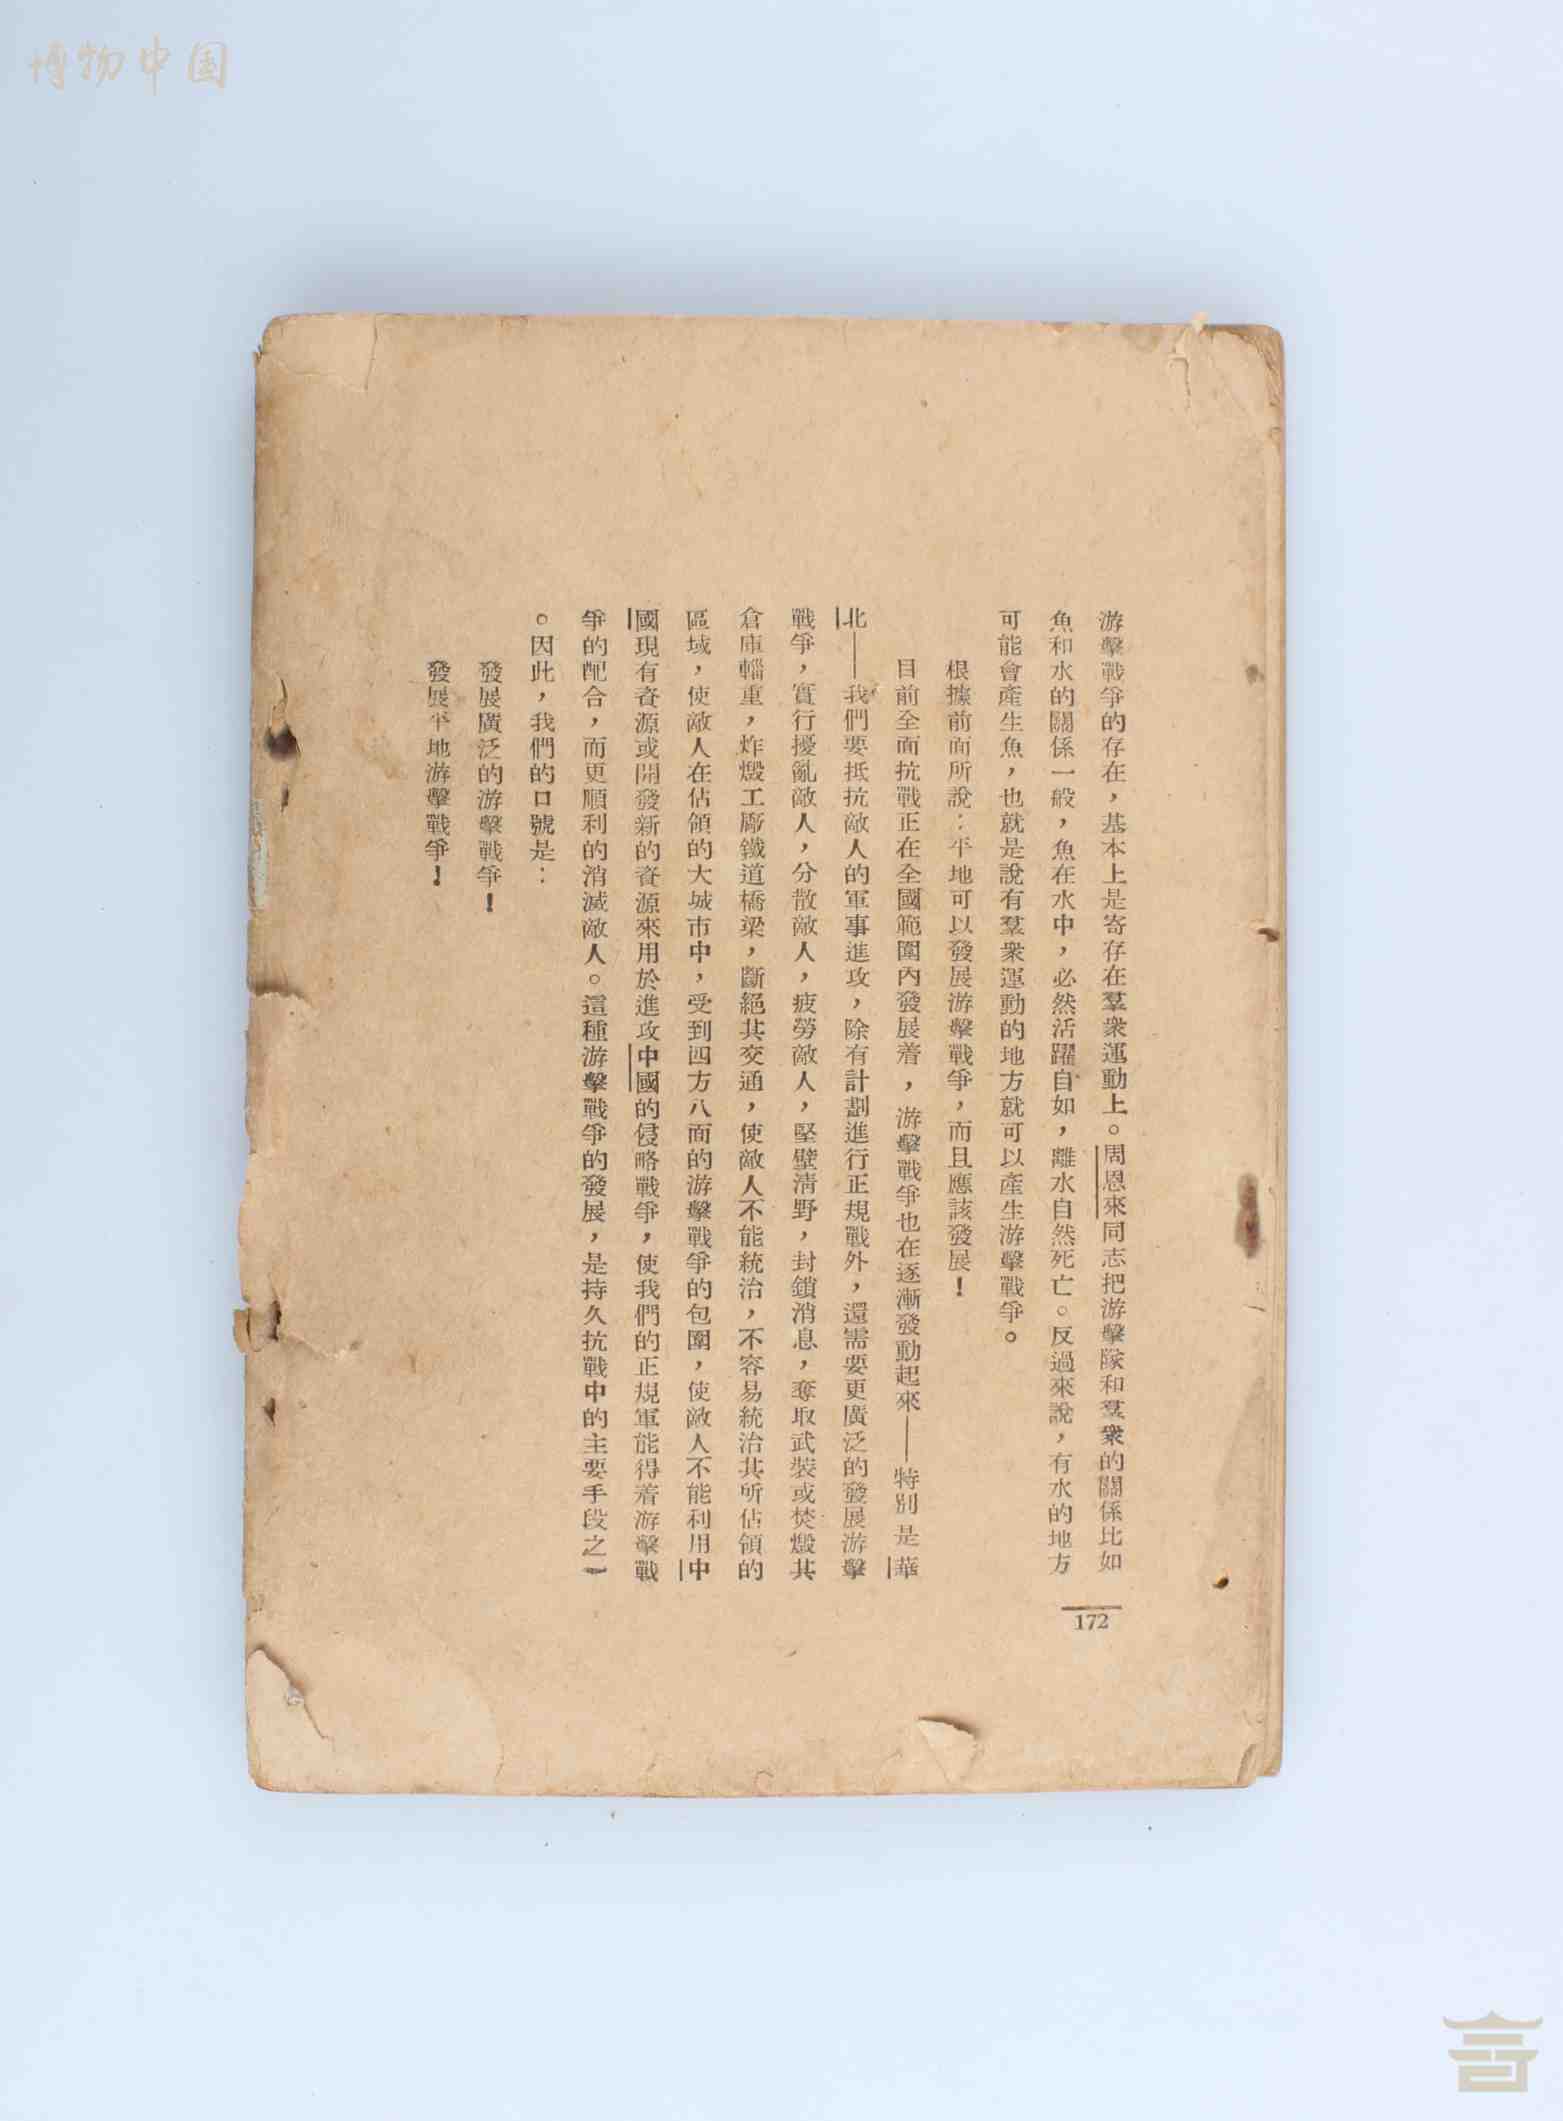 博物中国
游擊戰爭的存在，基本上是寄存在羣衆運動上。周恩來同志把游擊隊和羣衆的關係比如
魚和水的關係一般，魚在水中，必然活躍自如，離水自然死亡。反過來說，有水的地方
可能會產生魚，也就是說有羣衆運動的地方就可以產生游擊戰爭。
根據前面所說：平地可以發展游擊戰爭，而且應該發展！
目前全面抗戰正在全國範圍內發展着，游擊戰爭也在逐漸發動起來——特別是華
北——我們要抵抗敵人的軍事進攻，除有計劃進行正規戰外，還需要更廣泛的發展游擊
戰爭，實行擾亂敵人，分散敵人，疲勞敵人，堅壁清野，封鎖消息，奪取武裝或焚燬其
倉庫輜重，炸燬工廠鐵道橋梁，斷絕其交通，使敵人不能統治，不容易統治其所佔領的
區域，使敵人在佔領的大城市中，受到四方八面的游擊戰爭的包圍，使敵人不能利用中
國現有資源或開發新的資源來用於進攻中國的侵略戰爭，使我們的正規軍能得着游擊戰
爭的配合，而更順利的消滅敵人。這種游擊戰爭的發展，是持久抗戰中的主要手段之一
。因此，我們的口號是：
發展廣泛的游擊戰爭！
發展平地游擊戰爭！
172